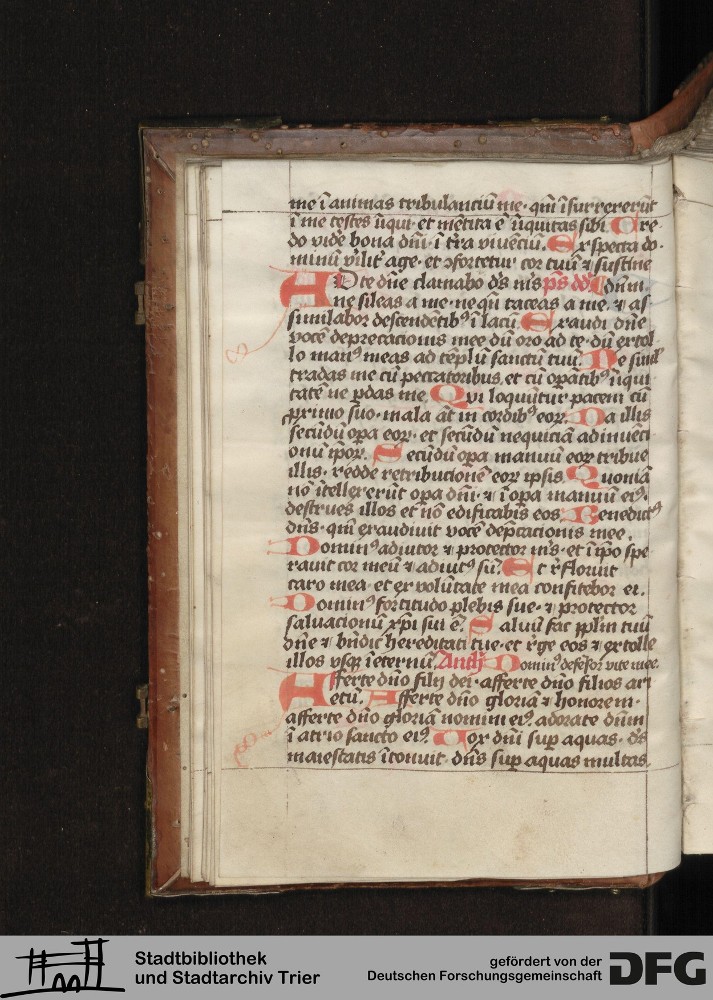 me ī animas tribulantiū me · qm̄ īsurrexerūt
ī me testes īiqui · et mētita ē īiquitas sibi. Cre
do vide bona dm̄i · ī tr̄a viuēciū. Expecta do
minū virilit̄ age · et ↄfortetur cor tuū ⁊ sustine
AD te dn̄e clamabo ds̄ m̄s ps̄ dd̄ dn̄m.
ne sileas a me · neqn̄ taceas a me. ⁊ as
similabor descendētibꝰ ī lacū. Exaudi dn̄e
vocē deprecacionis mee dū oro ad te · dū extol
lo manꝰ meas ad tēplū sanctū tuū. Ne simul
tradas me cū peccatoribus. et cū opātibꝰ īiqui
tatē ne ꝑdas me. Qui loquūtur pacem cū
ꝓximo suo · mala āt in cordibꝰ eoꝝ. Da illis
secūdū opa eoꝝ · et secūdū nequiciā adinuēci
onū ip̄oꝝ. Secūdū opa manuū eoꝝ tribue
illis · redde retribucionē eoꝝ ipsis. Quoniā
nō ītellexerūt opa dn̄i · ⁊ ī opa manuū eiꝰ.
destrues illos et nō edificabis eos. Benedictꝰ
dn̄s · qm̄ exaudiuit vocē dep̄cacionis mee.
Dominꝰ adiutor ⁊ protector m̄s · et ī ip̄o spe
rauit cor meū ⁊ adiutꝰ sū. Et r̄floruit
caro mea · et ex volūtate mea confitebor ei.
Dominꝰ fortitudo plebis sue · ⁊ protector
saluacionū xp̄i sui ē. Saluū fac pplm̄ tuū
dn̄e ⁊ bn̄dic hereditati tue · et r̄ge eos ⁊ extolle
illos vsqꝫ ī eternū. Dominꝰ defēsor vite mee.
Afferte dn̄o filij dei · afferte dn̄o filios ari
etū. Afferte dn̄o gloriā ⁊ honorem ·
afferte dn̄o gloriā nomini eiꝰ. adorate dn̄m
ī atrio sancto eiꝰ. Vox dn̄i suꝑ aquas · ds̄
maiestatis ītonuit · dn̄s suꝑ aquas multas.
Stadtbibliothek
und Stadtarchiv Trier
gefördert von der
Deutschen Forschungsgemeinschaft DFG